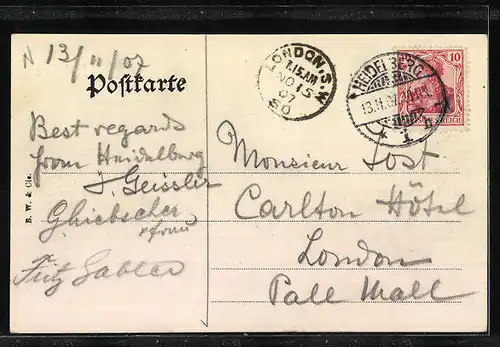 N 13/11/07
Postkarte
LONDON.S.W
7.15.AM
NO 15
07
50
HEIDELBERG
13.11.07.
10
REICH
Best regards
from Heidelberg
J. Geissler
& Frau
Fritz Gabler
B. W. & Cie.
Monsieur Jost
Carlton Hôtel
London
Pall Mall